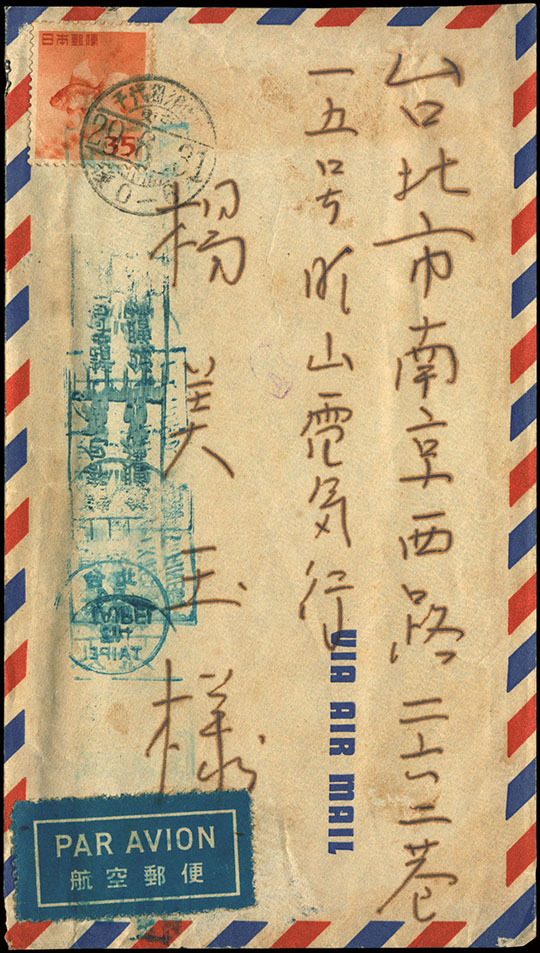 台北市南京西路二六二巷
一五号昕山電気行
楊美玉様
日本郵便
35
29.6.21
VIA AIR MAIL
TAIPEI
PAR AVION
航空郵便